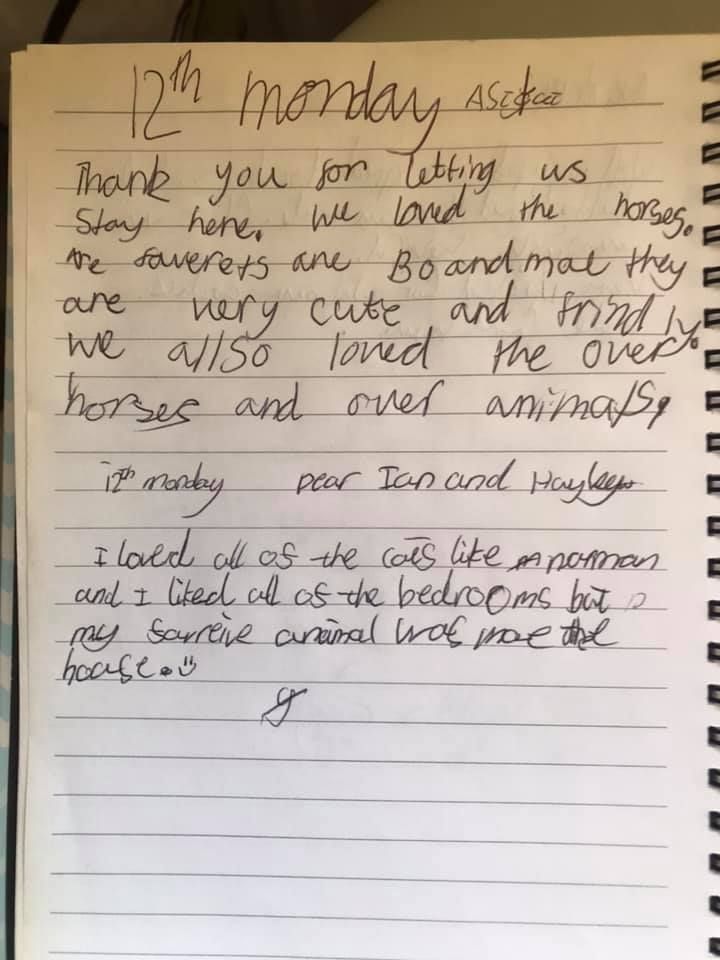 12th monday
Thank you for letting us
Stay here. we loved the horses.
Are faverets are Bo and mae they
are very cute and frindly.
we allso loved the over
horses and over animals,
12th monday Dear Ian and Hayley
I loved all of the cats like norman
and I liked all of the bedrooms but
my animal was mae the
hoase.